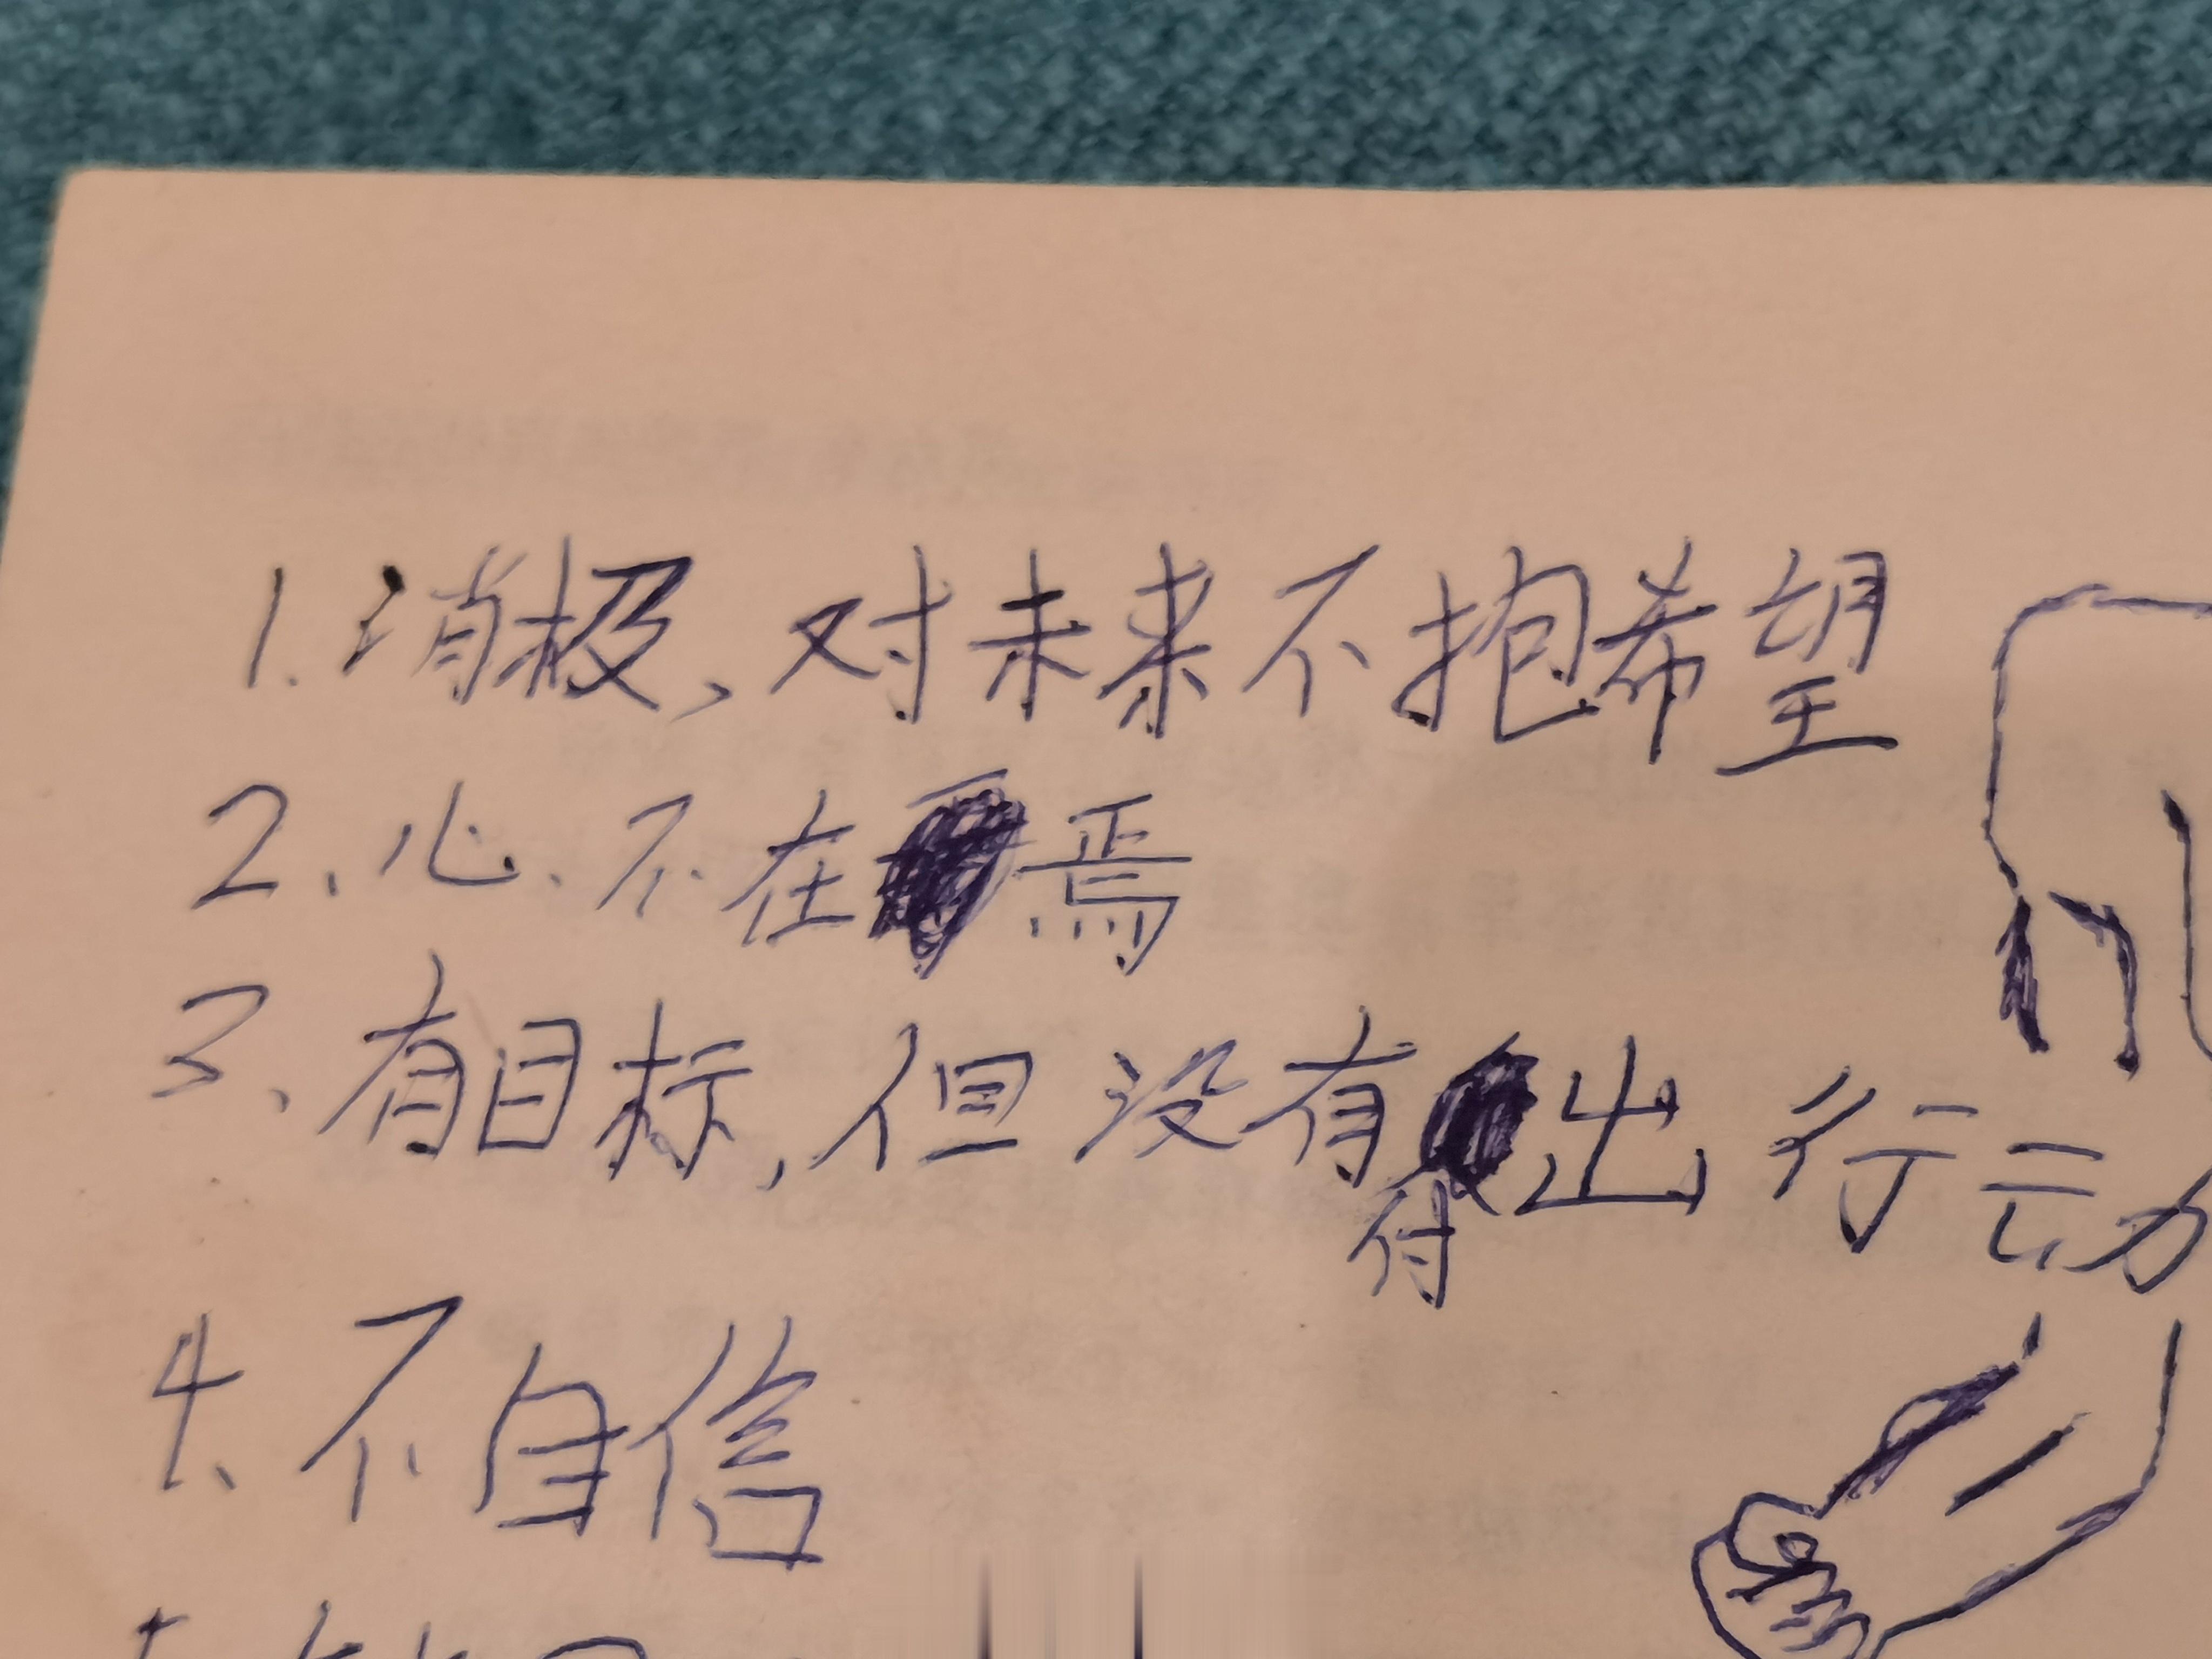 1.消极、对未来不抱希望
2、心不在焉
3、有目标,但没有付出行动
4、不自信